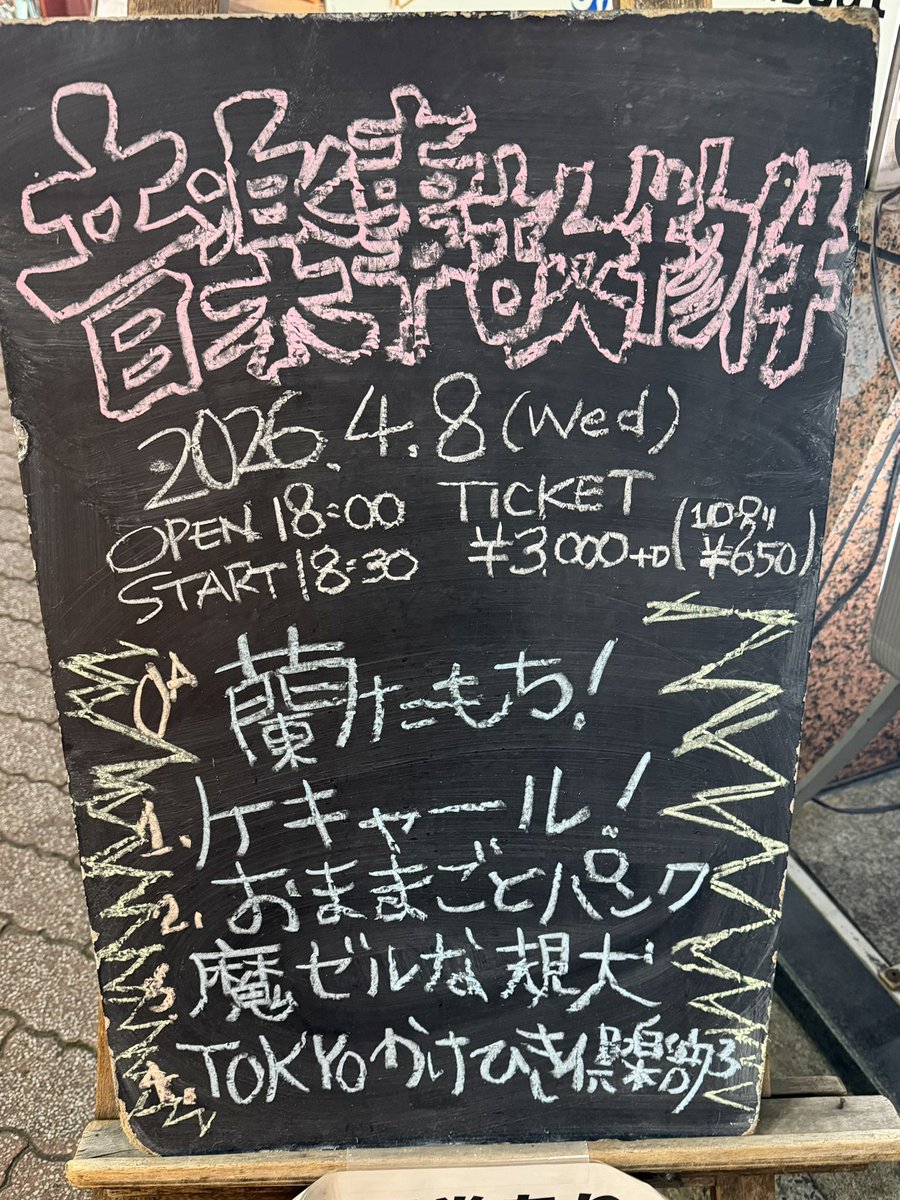 音楽事故物件
2026.4.8(Wed)
OPEN 18:00
START 18:30
TICKET
¥3,000+D(1D別 ¥650)
OA 蘭たもち!
1. ケキャール!
2. おままごとパンク
3. 魔ゼルな規犬
4. TOKYOかけひき倶楽部